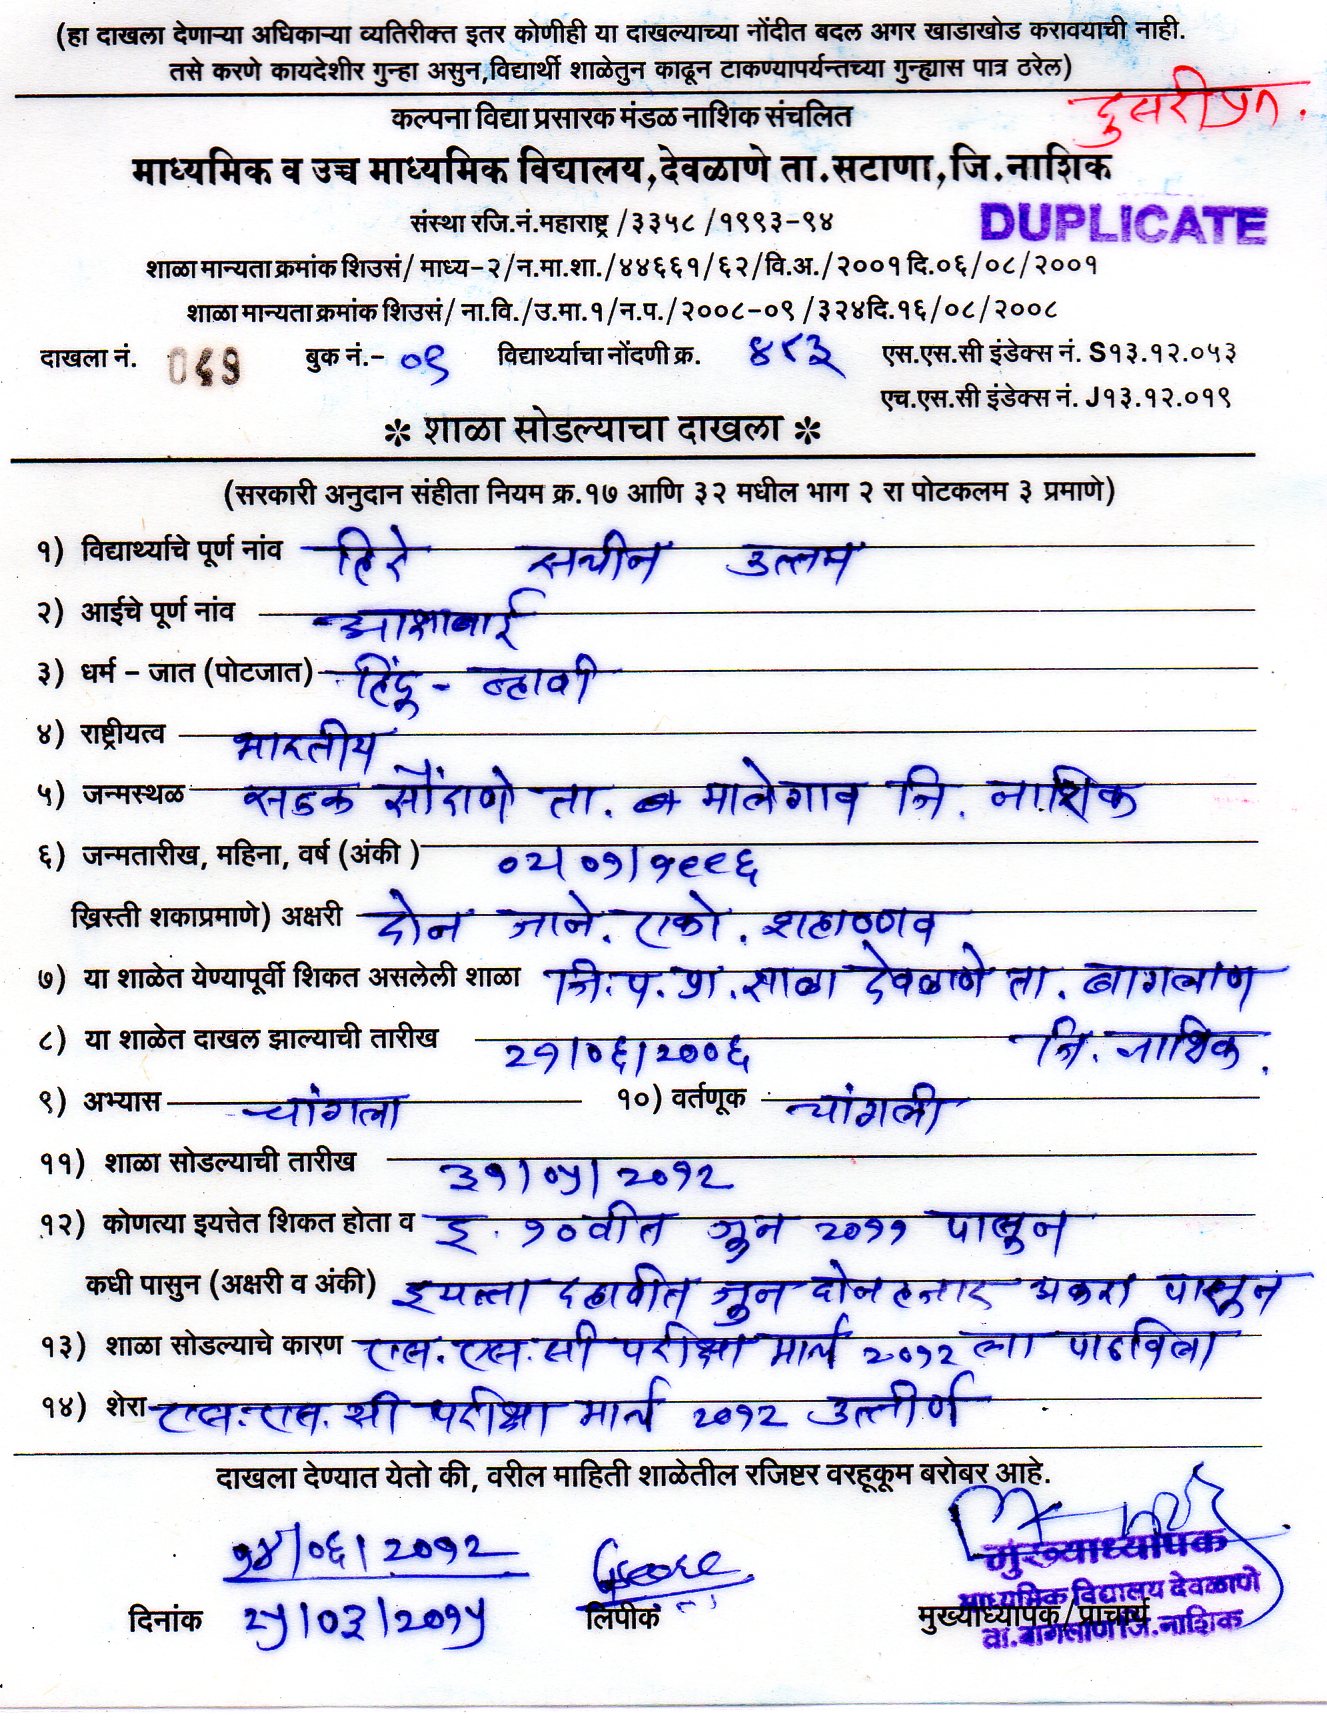 (हा दाखला देणाऱ्या अधिकाऱ्या व्यतिरीक्त इतर कोणीही या दाखल्याच्या नोंदीत बदल अगर खाडाखोड करावयाची नाही.
तसे करणे कायदेशीर गुन्हा असुन,विद्यार्थी शाळेतुन काढून टाकण्यापर्यन्तच्या गुन्ह्यास पात्र ठरेल)
दुसरी प्रत.
कल्पना विद्या प्रसारक मंडळ नाशिक संचलित
माध्यमिक व उच्च माध्यमिक विद्यालय,देवळाणे ता.सटाणा,जि.नाशिक
संस्था रजि.नं.महाराष्ट्र /३३५८ /१९९३-९४
DUPLICATE
शाळा मान्यता क्रमांक शिउसं/ माध्य-२/न.मा.शा./४४६६१/६२/वि.अ./२००१ दि.०६/०८/२००१
शाळा मान्यता क्रमांक शिउसं/ ना.वि./उ.मा.१/न.प./२००८-०९ /३२४दि.१६/०८/२००८
दाखला नं. बुक नं.- ०९ विद्यार्थ्याचा नोंदणी क्र. ४९३ एस.एस.सी इंडेक्स नं. S१३.१२.०५३
एच.एस.सी इंडेक्स नं. J१३.१२.०१९
✻ शाळा सोडल्याचा दाखला ✻
(सरकारी अनुदान संहीता नियम क्र.१७ आणि ३२ मधील भाग २ रा पोटकलम ३ प्रमाणे)
१) विद्यार्थ्याचे पूर्ण नांव हिरे सचीन उत्तम
२) आईचे पूर्ण नांव आशाबाई
३) धर्म – जात (पोटजात) हिंदू - न्हावी
४) राष्ट्रीयत्व भारतीय
५) जन्मस्थळ सडक सौंदाणे ता. मालेगाव जि. नाशिक
६) जन्मतारीख, महिना, वर्ष (अंकी ) ०२/०१/१९९६
ख्रिस्ती शकाप्रमाणे) अक्षरी दोन जाने. एको. शहाण्णव
७) या शाळेत येण्यापूर्वी शिकत असलेली शाळा जि.प.प्रा.शाळा देवळाणे ता. बागलाण
८) या शाळेत दाखल झाल्याची तारीख २१/०६/२००६ जि. नाशिक.
९) अभ्यास चांगला १०) वर्तणूक चांगली
११) शाळा सोडल्याची तारीख ३१/०५/२०१२
१२) कोणत्या इयत्तेत शिकत होता व इ. १०वीत जून २०११ पासून
कधी पासुन (अक्षरी व अंकी) इयत्ता दहावीत जुन दोनहजार अकरा पासून
१३) शाळा सोडल्याचे कारण एस.एस.सी परीक्षा मार्च २०१२ ला पाठविला
१४) शेरा एस.एस.सी परीक्षा मार्च २०१२ उत्तीर्ण
दाखला देण्यात येतो की, वरील माहिती शाळेतील रजिष्टर वरहूकूम बरोबर आहे.
१४/०६/२०१२
मुख्याध्यापक
माध्यमिक विद्यालय देवळाणे
दिनांक २५/०३/२०१५ लिपीक मुख्याध्यापक/प्राचार्य
ता.बागलाण जि.नाशिक